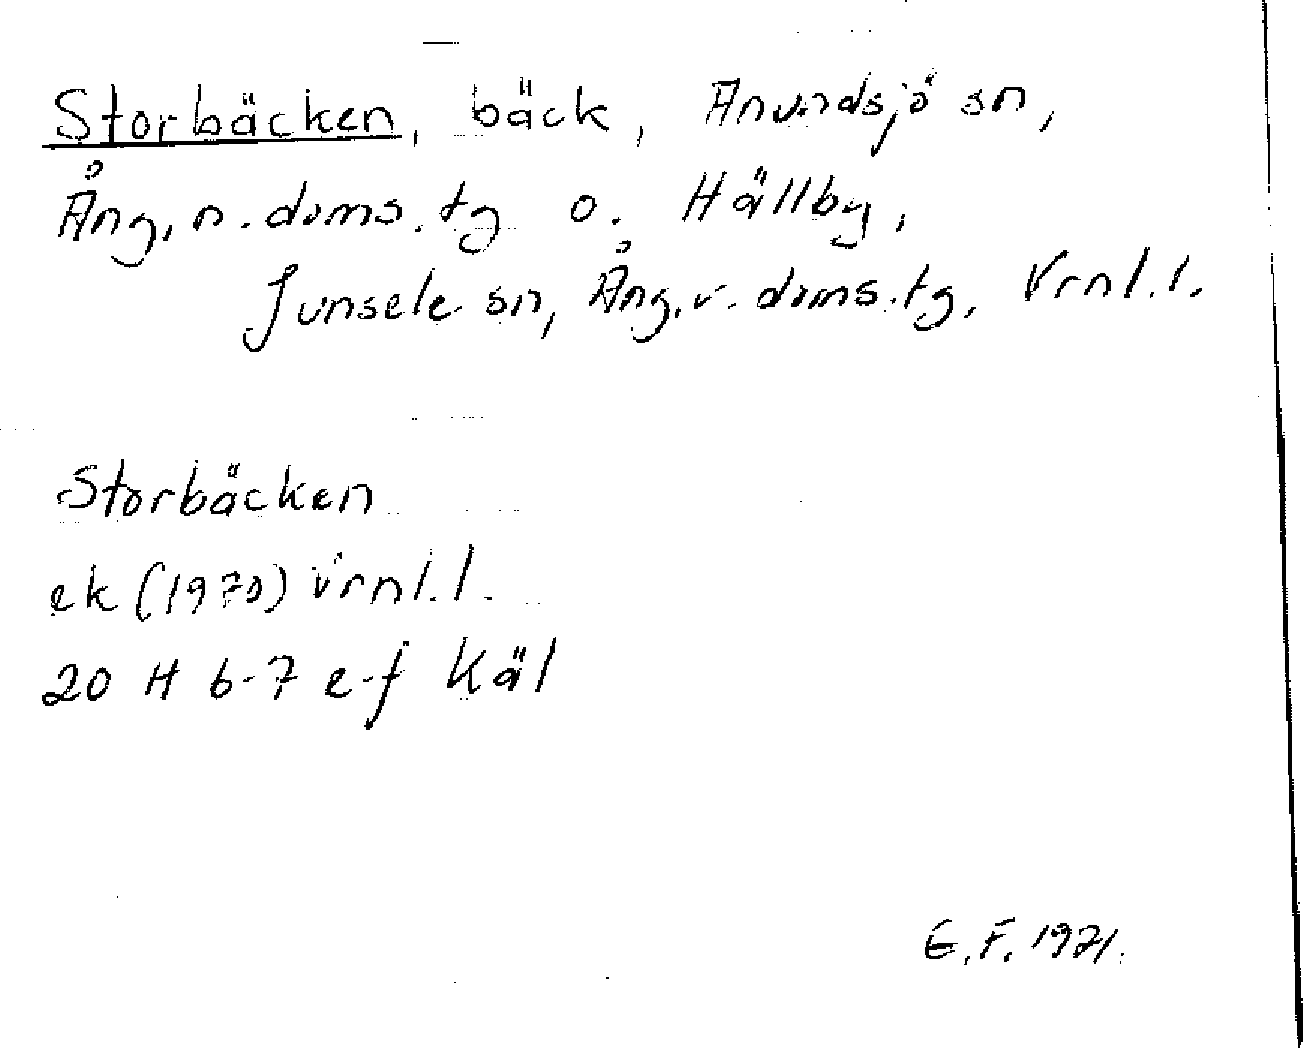 Storbäcken, bäck, Anundsjö sn,
Ång. n. doms. tg o. Hällby,
Junsele sn, Ång. v. doms. tg, Vrnl. l.
Storbäcken
ek (1970) Vrnl. l.
20 H 6-7 e-f Käl
E. F. 1971.